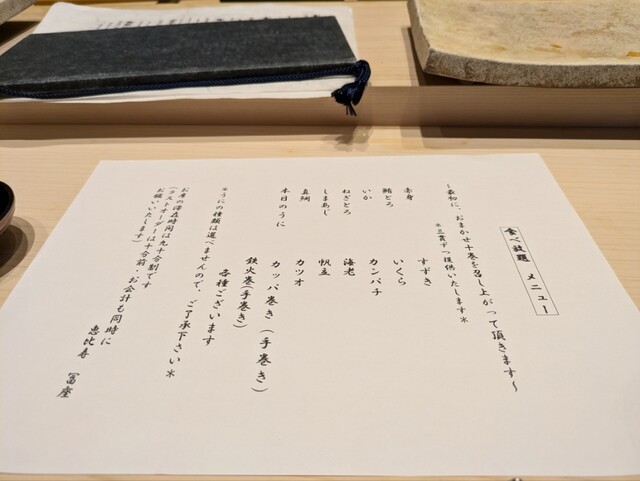 食べ放題 メニュー
~最初に、おまかせ十巻を召し上がって頂きます~
＊三貫ずつ提供いたします＊
赤身 すずき
鮪とろ いくら
いか カンパチ
ねぎとろ 海老
しまあじ 帆立
真鯛 カツオ
本日のうに カッパ巻き(手巻き)
鉄火巻(手巻き)
各種ございます
＊うにの種類は選べませんので、ご了承下さい＊
お席の滞在時間は九十分制です
(ラストオーダーは十分前・お会計も同時に
お願いいたします)
恵比寿 冨座